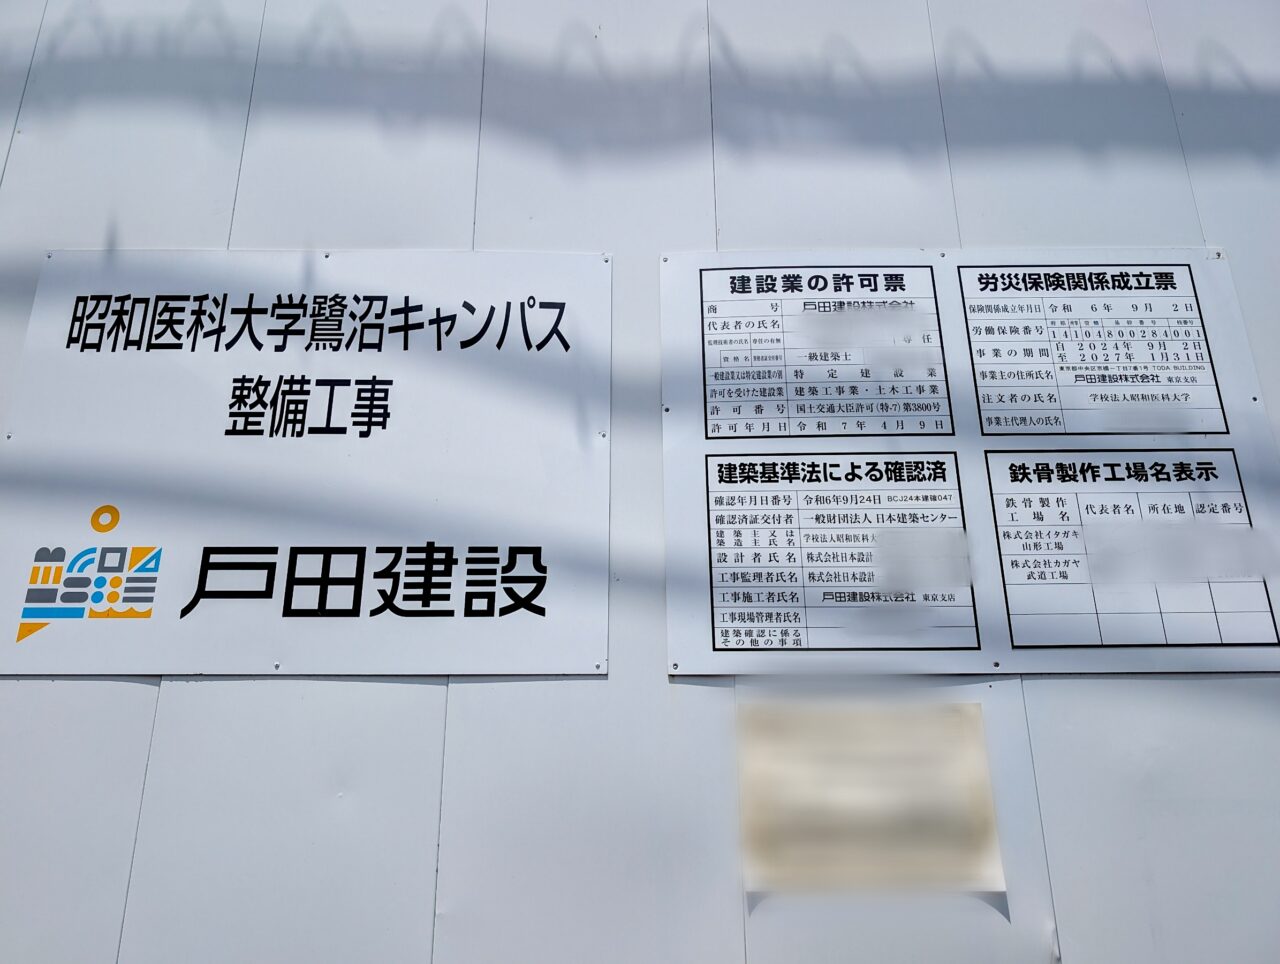 昭和医科大学鷺沼キャンパス
整備工事
戸田建設
建設業の許可票
商号 戸田建設株式会社
代表者の氏名
監理技術者の氏名 専任の有無 専任
資格名 一級建築士
一般建設業又は特定建設業の別 特定建設業
許可を受けた建設業 建築工事業・土木工事業
許可番号 国土交通大臣許可(特-7)第3800号
許可年月日 令和7年4月9日
労災保険関係成立票
保険関係成立年月日 令和 6年 9月 2日
府県 所掌 管轄 基幹番号 枝番号
労働保険番号 14104800284001
事業の期間 自 2024年 9月 2日
至 2027年 1月31日
東京都中央区京橋一丁目7番1号 TODA BUILDING
事業主の住所氏名 戸田建設株式会社 東京支店
注文者の氏名 学校法人昭和医科大学
事業主代理人の氏名
建築基準法による確認済
確認年月日番号 令和6年9月24日 BCJ24本建確047
確認済証交付者 一般財団法人 日本建築センター
建築主又は
築造主氏名 学校法人昭和医科大
設計者氏名 株式会社日本設計
工事監理者氏名 株式会社日本設計
工事施工者氏名 戸田建設株式会社 東京支店
工事現場管理者氏名
建築確認に係る
その他の事項
鉄骨製作工場名表示
鉄骨製作
工場名 代表者名 所在地 認定番号
株式会社イタガキ
山形工場
株式会社カガヤ
武道工場